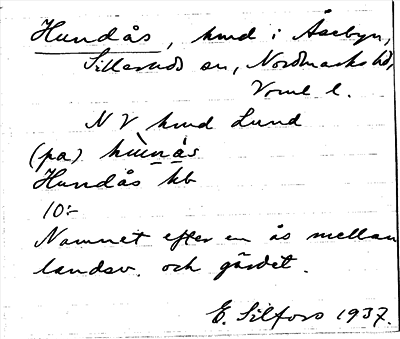 Hundås, hmd i Åsebyn,
Silleruds sn, Nordmarks hd,
Värml l.
NV hmd Lund
(pa) hùnås
Hundås kb
10:-
Namnet efter en ås mellan
landsv. och gärdet.
E. Silfors 1937.